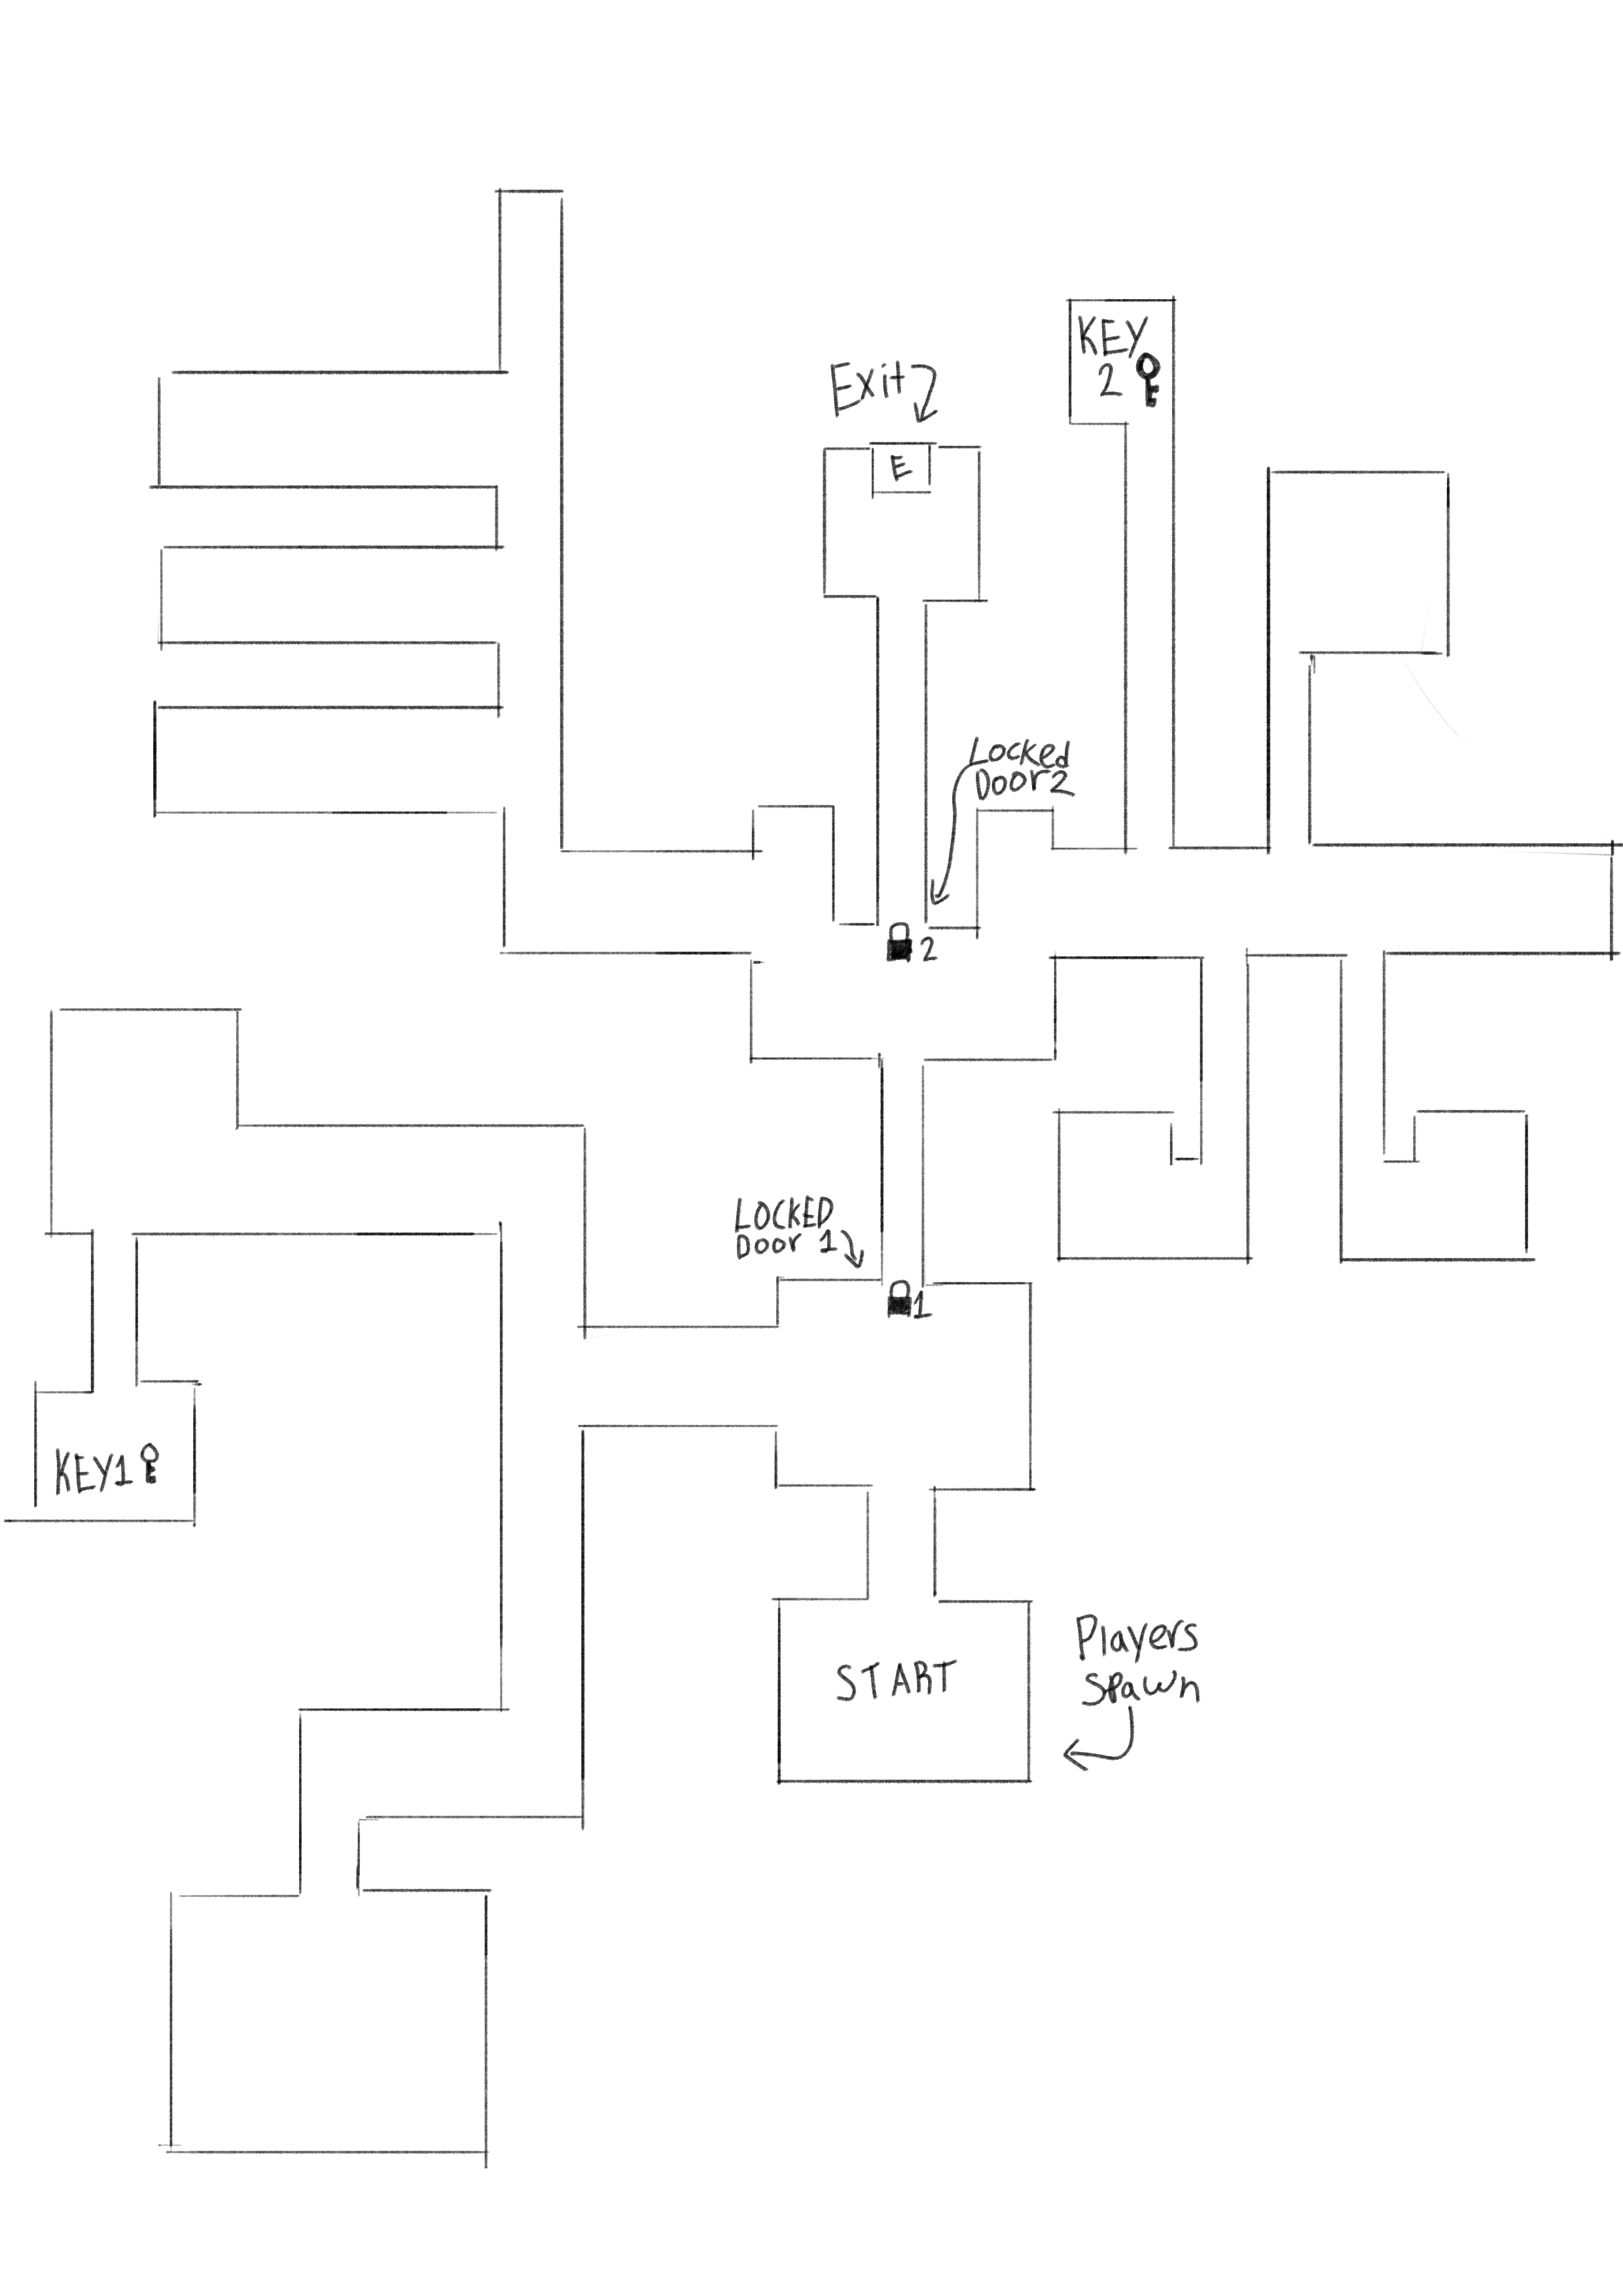 KEY
2
Exit
E
Locked
Door 2
2
LOCKED
Door 1
1
KEY1
START
Players
Spawn